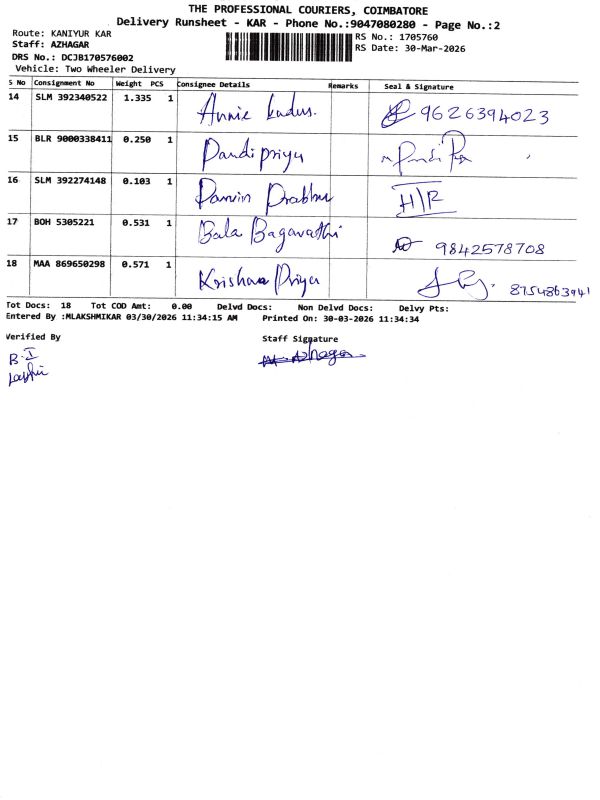 THE PROFESSIONAL COURIERS, COIMBATORE
Delivery Runsheet - KAR - Phone No.:9047080280 - Page No.:2
Route: KANIYUR KAR
Staff: AZHAGAR
DRS No.: DCJB170576002
Vehicle: Two Wheeler Delivery
RS No.: 1705760
RS Date: 30-Mar-2026
S No Consignment No Weight PCS Consignee Details Remarks Seal & Signature
14 SLM 392340522 1.335 1 Annie 9626394023
15 BLR 9000338411 0.250 1 Pandi priya
16 SLM 392274148 0.103 1 Prabhu H/R
17 BOH 5305221 0.531 1 Bala Bagavathi 9842578708
18 MAA 869650298 0.571 1 Krishna Priya 8754863941
Tot Docs: 18 Tot COD Amt: 0.00 Delvd Docs: Non Delvd Docs: Delvy Pts:
Entered By :MLAKSHMIKAR 03/30/2026 11:34:15 AM Printed On: 30-03-2026 11:34:34
Verified By Staff Signature